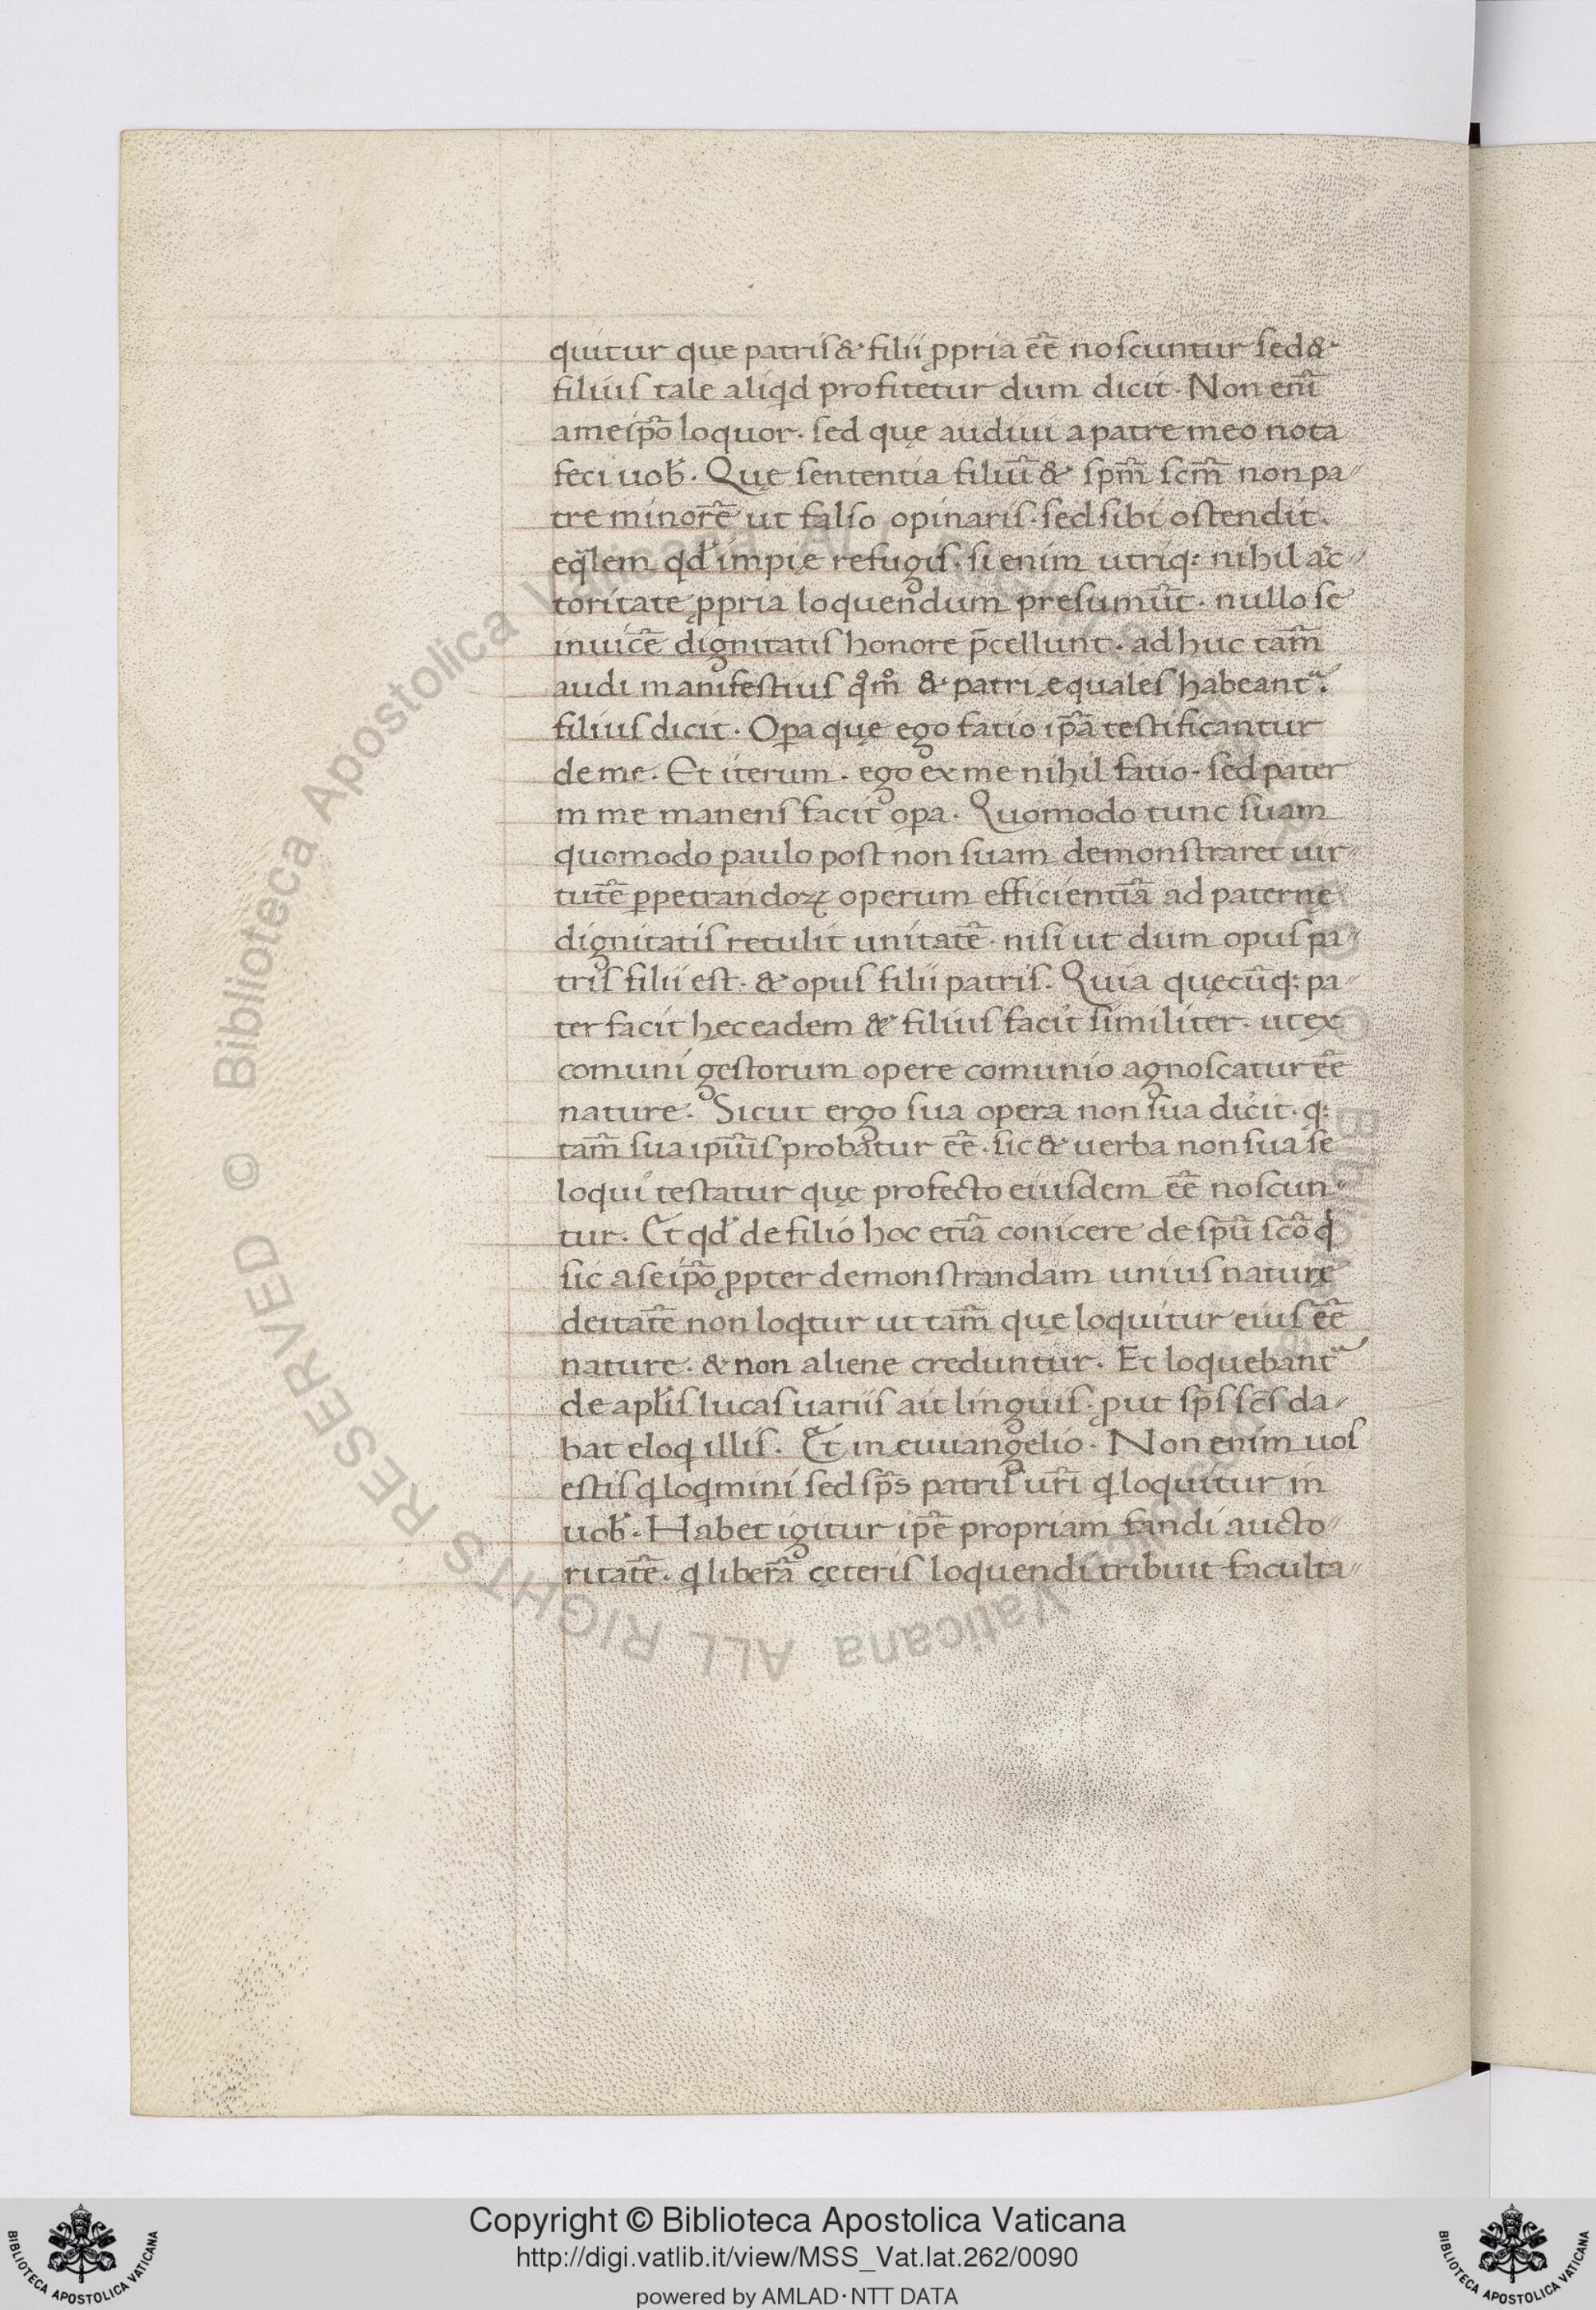 quitur que patris & filii ꝓpria eē noscuntur sed &
filius tale aliqd profitetur dum dicit. Non eni̅
a me ip̅o loquor. sed quę audiui a patre meo nota
feci uob̾. Quę sententia filiu̅ & sp̅m sc̅m non pa-
tre minore̅ ut falso opinaris. sed sibi ostendit.
eq̾lem qd̾ impie refugis. si enim utriq: nihil ac-
toritate ꝓpria loquendum presumu̅t. nullo se
inuice̅ dignitatis honore p̅cellunt. ad huc tam̅
audi manifestius qm̊ & patri equales habeant̾.
filius dicit. Oꝑa quę ego fatio ip̅a testificantur
de me. Et iterum. ego ex me nihil fatio. sed pater
in me manens facit oꝑa. Quomodo tunc suam
quomodo paulo post non suam demonstraret uir-
tute̅ ꝑpetrandoꝝ operum efficientia̅ ad paternę
dignitatis retulit unitate̅. nisi ut dum opus pa-
tris filii est. & opus filii patris. Quia quęcu̅q: pa-
ter facit hec eadem & filius facit similiter. ut ex
comuni gestorum opere comunio agnoscatur ee̅
nature. Sicut ergo sua opera non sua dicit. q:
tam̅ sua ipiu̅s probatur ee̅. sic & uerba non sua se
loqui testatur quę profecto eiusdem ee̅ noscun-
tur. Et qd̾ de filio hoc etia̅ conicere de spu̅ sco̅ q
sic a se ip̅o ꝓpter demonstrandam unius naturę
deitate̅ non loqtur ut tam̅ quę loquitur eius ee̅
nature. & non aliene creduntur. Et loquebant̾
de apl̅is lucas uariis ait linguis. ꝓut sp̅s sc̅s da-
bat eloq illis. Et in euuangelio. Non enim uos
estis q loqmini sed sp̅s patris ur̅i q loquitur in
uob̾. Habet igitur ip̅e propriam fandi aucto-
ritate̅. q libera̅ ceteris loquendi tribuit faculta-
© Biblioteca Apostolica Vaticana ALL RIGHTS RESERVED
Copyright © Biblioteca Apostolica Vaticana
http://digi.vatlib.it/view/MSS_Vat.lat.262/0090
powered by AMLAD·NTT DATA
BIBLIOTECA APOSTOLICA VATICANA
BIBLIOTECA APOSTOLICA VATICANA